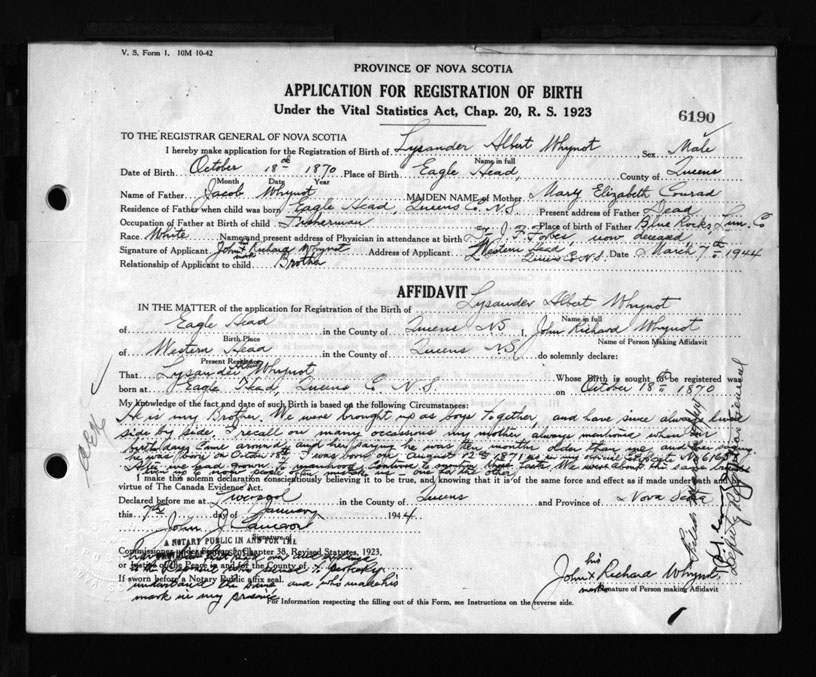 V. S. Form 1. 10M 10-42
PROVINCE OF NOVA SCOTIA
APPLICATION FOR REGISTRATION OF BIRTH
Under the Vital Statistics Act, Chap. 20, R. S. 1923
6190
TO THE REGISTRAR GENERAL OF NOVA SCOTIA
I hereby make application for the Registration of Birth of Lysander Albert Whynot Sex Male
Name in full
Date of Birth October 18th 1870 Place of Birth Eagle Head, County of Queens
Month Date Year
Name of Father Jacob Whynot MAIDEN NAME of Mother Mary Elizabeth Conrad
Residence of Father when child was born Eagle Head, Queens Co. N.S. Present address of Father Dead
Occupation of Father at Birth of child Fisherman Place of birth of Father Blue Rocks, Lun. Co
Race White Name and present address of Physician in attendance at birth now deceased
Signature of Applicant John x Richard Whynot Address of Applicant Western Head Queens Co N.S. Date March 7th 1944
mark
Relationship of Applicant to child Brother
AFFIDAVIT
IN THE MATTER of the application for Registration of the Birth of Lysander Albert Whynot
Name in full
of Eagle Head in the County of Queens N.S. I, John Richard Whynot
Birth Place Name of Person Making Affidavit
of Western Head in the County of Queens N.S. do solemnly declare:
Present Residence
That Lysander Albert Whynot Whose Birth is sought to be registered was
born at Eagle Head, Queens Co N.S. on October 18th 1870
My knowledge of the fact and date of such Birth is based on the following Circumstances:
He is my Brother. We were brought up as boys together, and have since always lived
side by side. I recall on many occasions my mother always mentioned when our
birthdays came around, and her saying he was months older than me and
he was Born on October 18th. I was born on August 12th 1871 as No 6165
After we had grown to manhood, We were about the same
I make this solemn declaration consciously believing it to be true, and knowing that it is of the same force and effect as if made under oath and by
virtue of The Canada Evidence Act.
Declared before me at Liverpool in the County of Queens and Province of Nova Scotia
this 7th day of January 1944
John J. Cameron
Signature of
A NOTARY PUBLIC IN AND FOR THE
Commissioner under Chapter 38, Revised Statutes, 1923,
or Justice of the Peace in and for the County of
to the Deponent who seemed to perfectly
If sworn before a Notary Public affix seal.
understand the same and who makes his
mark in my presence
his
John x Richard Whynot
mark
Signature of Person making Affidavit
For Information respecting the filling out of this Form, see Instructions on the reverse side.
Deputy Registrar General